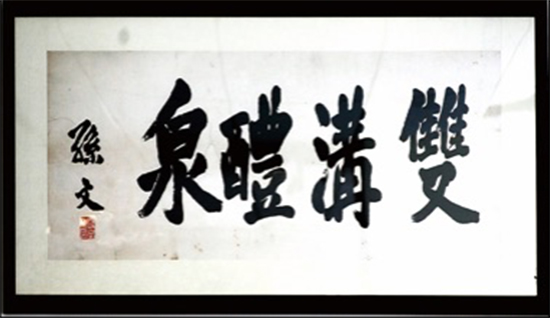 雙溝醴泉
孫文